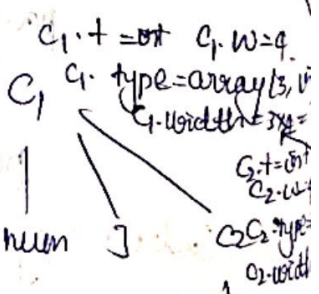 C₁.t = int C₁.w=4
C₁ C₁.type=array(3, i
C₁.width=3x4=
C₂.t=int
C₂.w=
num ] C₂ C₂.type=
C₂.width